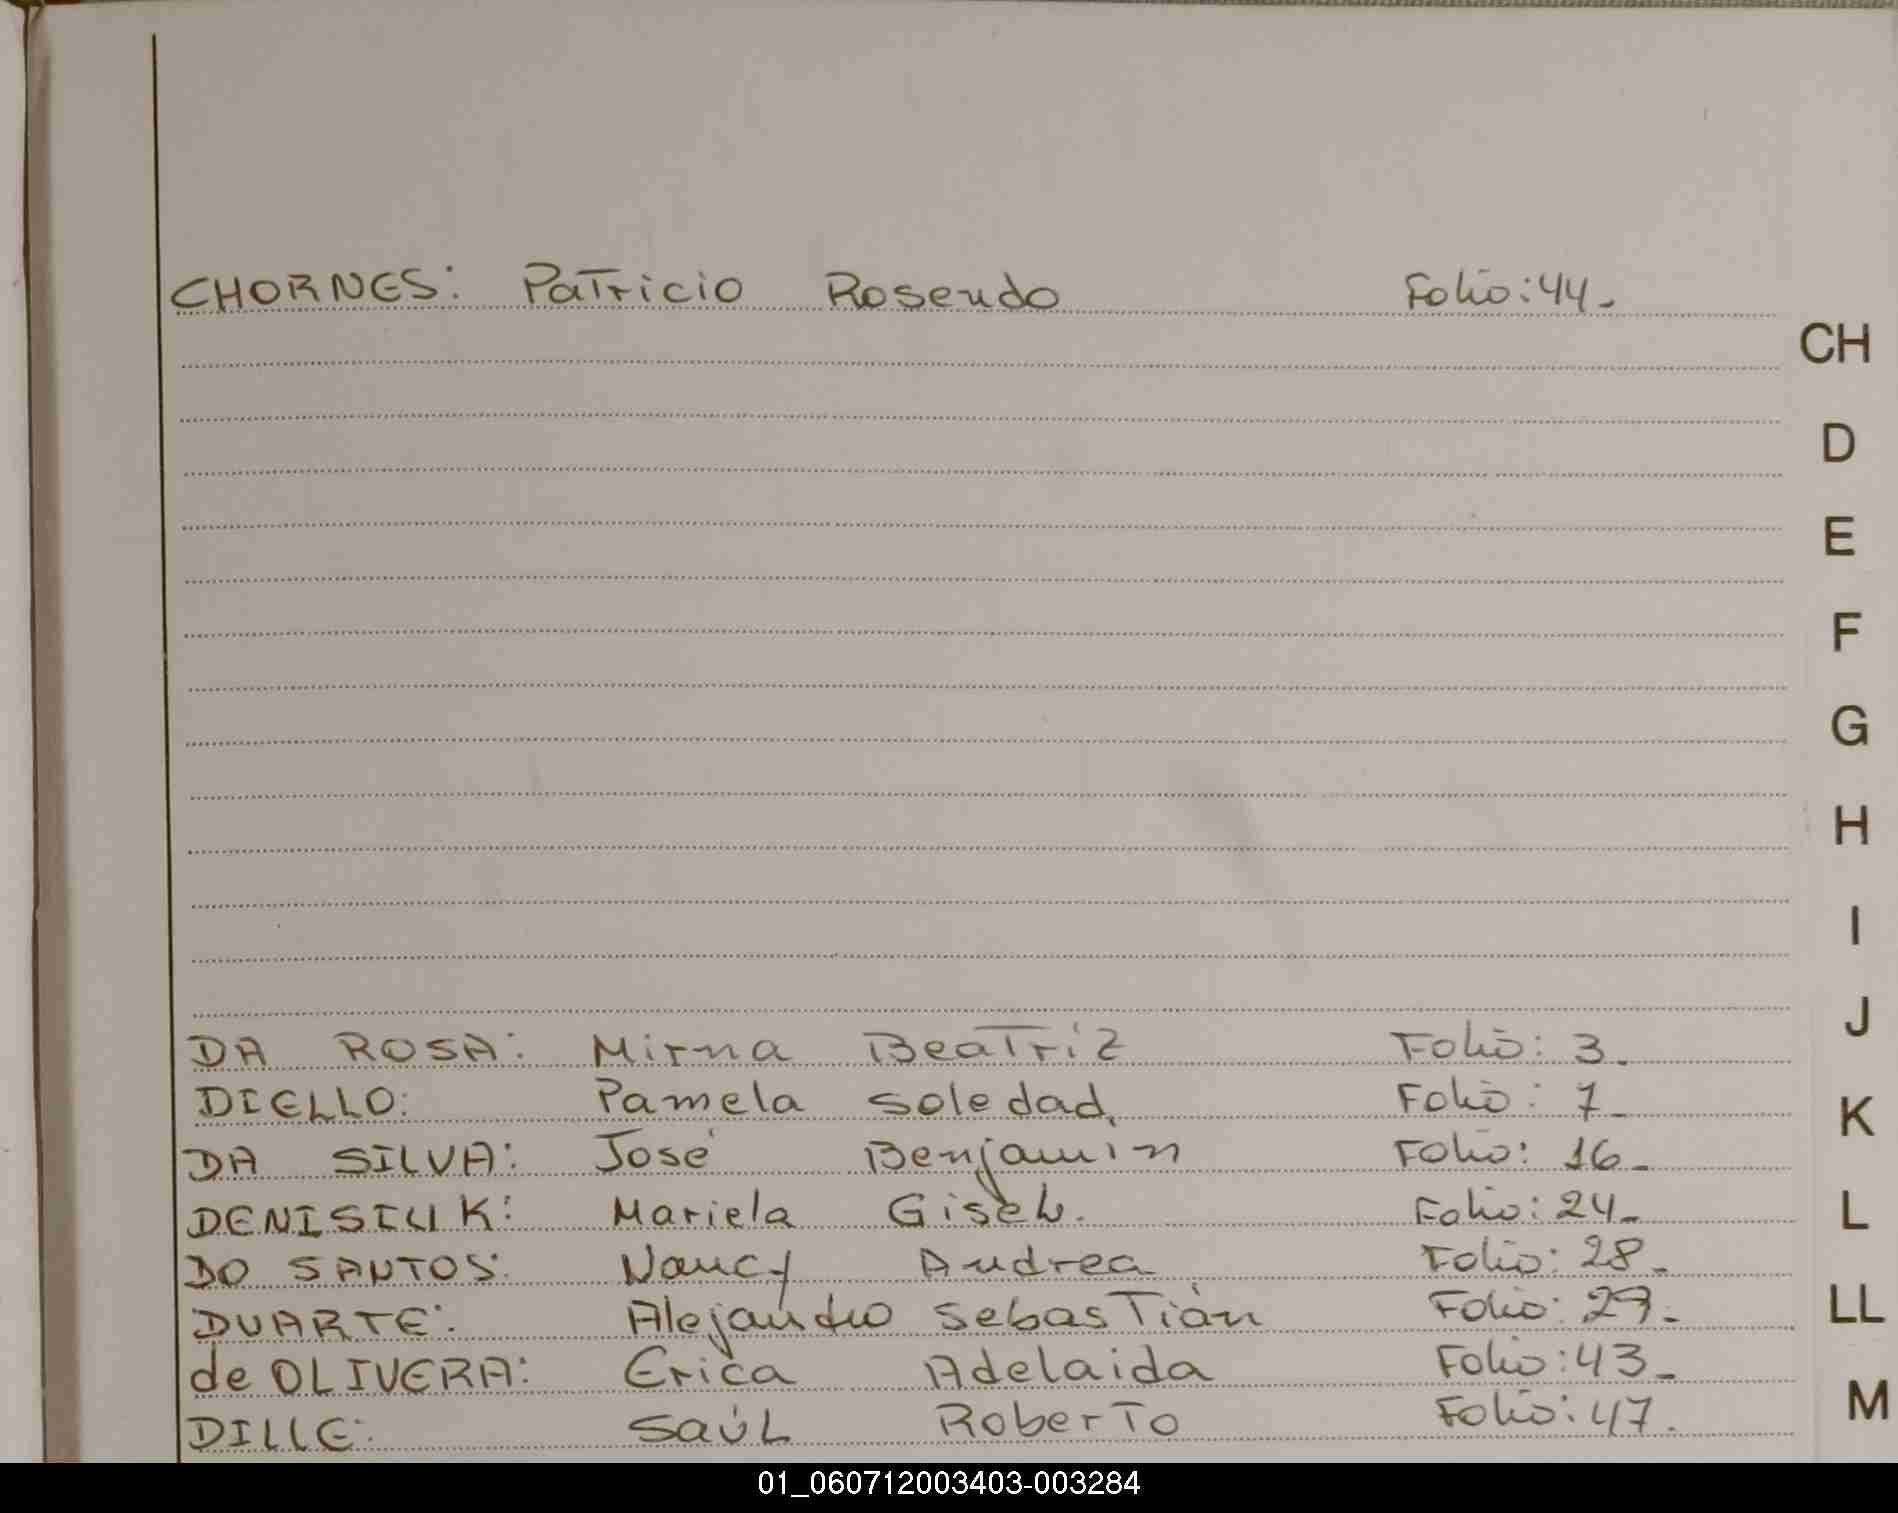 CHORNES: Patricio Rosendo Folio: 44.
CH
D
E
F
G
H
I
J
DA ROSA: Mirna Beatriz Folio: 3.
DIELLO: Pamela Soledad. Folio: 7.
K
DA SILVA: José Benjamin Folio: 16.
DENISIUK: Mariela Gisela. Folio: 24.
L
DO SANTOS: Nancy Andrea Folio: 28.
DUARTE: Alejandro Sebastián Folio: 29.
LL
de OLIVERA: Erica Adelaida Folio: 43.
M
DILLE: Saúl Roberto Folio: 47.
01_060712003403-003284